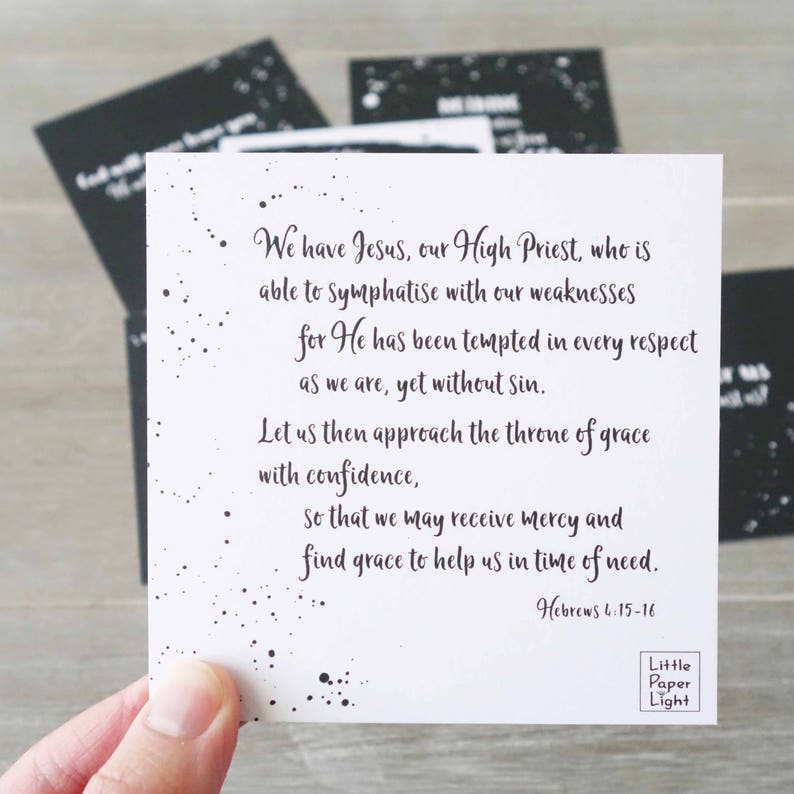 We have Jesus, our High Priest, who is
able to symphatise with our weaknesses
for He has been tempted in every respect
as we are, yet without sin.
Let us then approach the throne of grace
with confidence,
so that we may receive mercy and
find grace to help us in time of need.
Hebrews 4:15-16
Little
Paper
Light
God will never leave you
us
us?